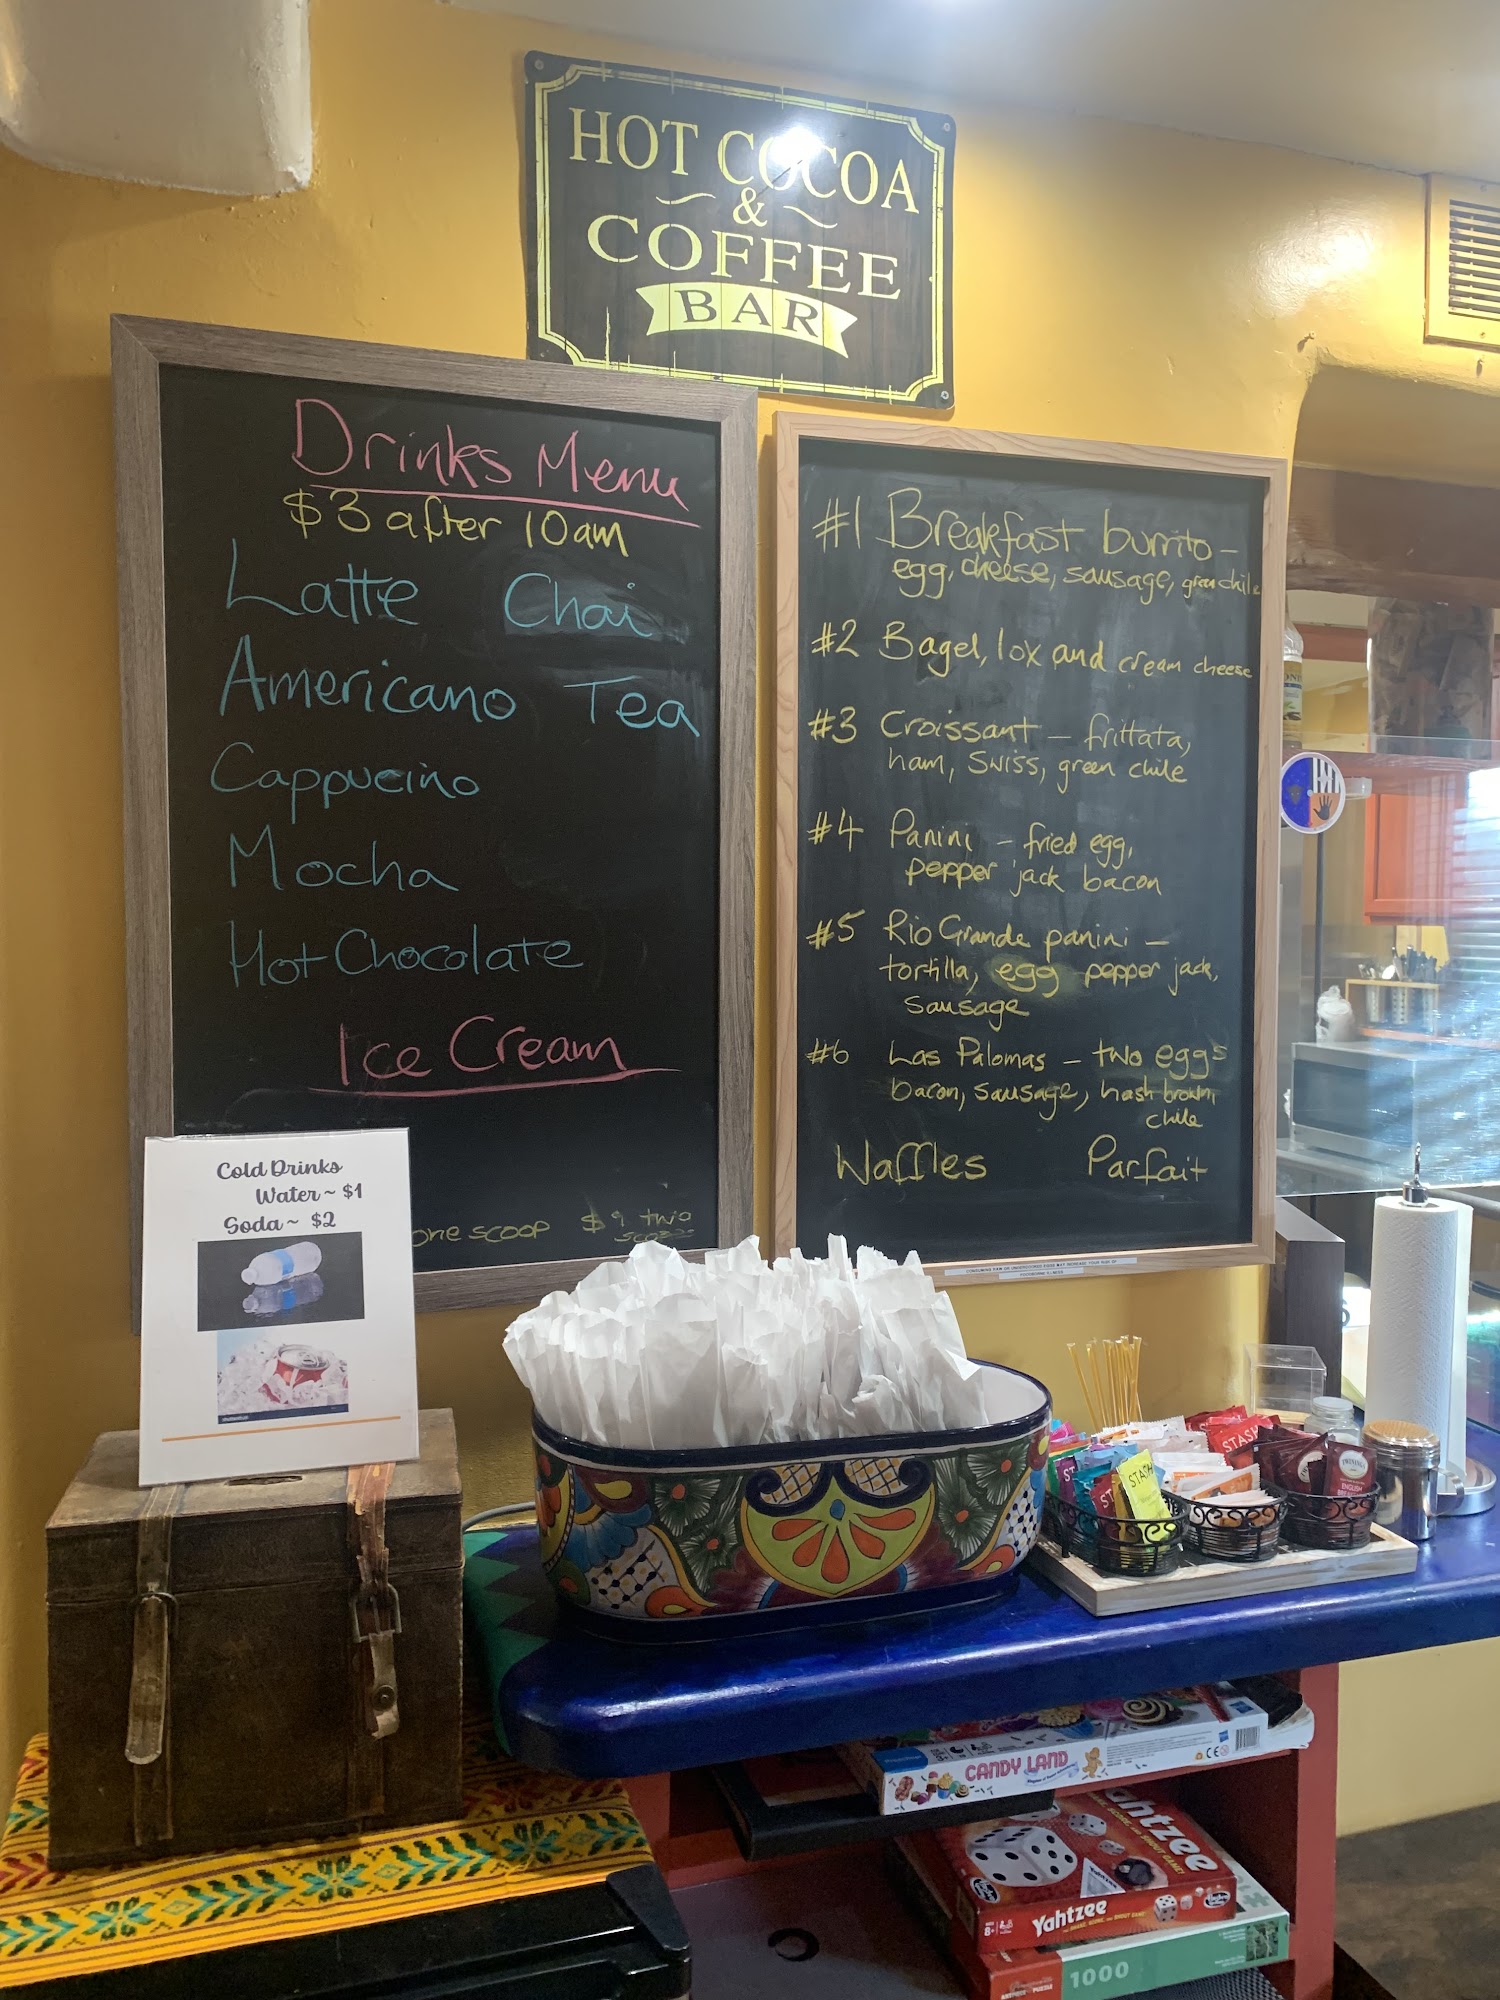 HOT COCOA
&
COFFEE
BAR
Drinks Menu
$3 after 10am
Latte Chai
Americano Tea
Cappucino
Mocha
Hot Chocolate
Ice Cream
one scoop $ two
Cold Drinks
Water ~ $1
Soda ~ $2
#1 Breakfast burrito -
egg, cheese, sausage, green chile
#2 Bagel, lox and cream cheese
#3 Croissant - frittata,
ham, Swiss, green chile
#4 Panini - fried egg,
pepper jack bacon
#5 Rio Grande panini -
tortilla, egg pepper jack,
sausage
#6 Las Palomas - two eggs
bacon, sausage, hash brown,
chile
Waffles Parfait
CONSUMING RAW OR UNDERCOOKED EGGS MAY INCREASE YOUR RISK OF
FOODBORNE ILLNESS
STASH
STASH
TWININGS
ENGLISH
CANDY LAND
Yahtzee
Yahtzee
8+
Hasbro
1000